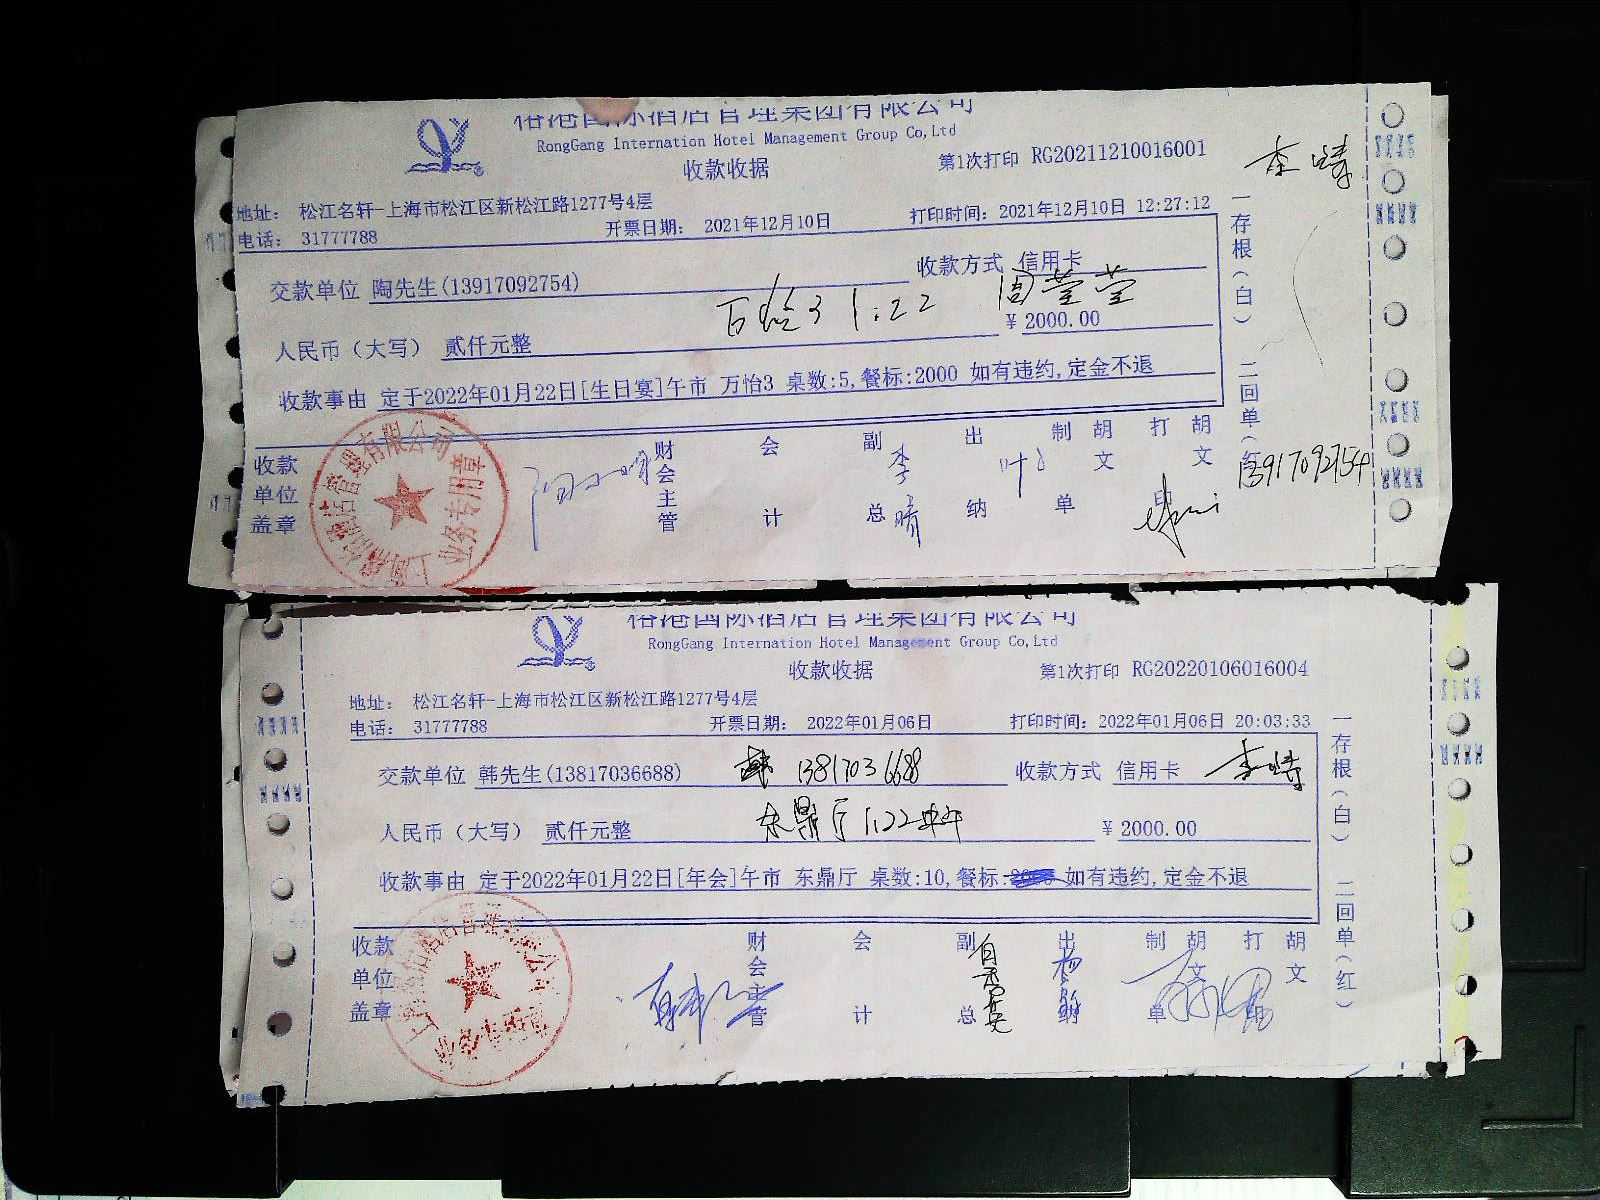 国际酒店管理集团有限公司
RongGang Internation Hotel Management Group Co,Ltd
收款收据
第1次打印 RG20211210016001
地址: 松江名轩-上海市松江区新松江路1277号4层
电话: 31777788
开票日期: 2021年12月10日
打印时间: 2021年12月10日 12:27:12
交款单位 陶先生(13917092754)
收款方式 信用卡
万怡3 1:22
人民币（大写） 贰仟元整
¥2000.00
收款事由 定于2022年01月22日[生日宴]午市 万怡3 桌数:5,餐标:2000 如有违约,定金不退
收款单位盖章
财会主管
会计
副总
李晴
出纳
制单
胡文
打印
胡文
13917092754
一存根(白) 二回单(红)
业务专用章
国际酒店管理集团有限公司
RongGang Internation Hotel Management Group Co,Ltd
收款收据
第1次打印 RG20220106016004
地址: 松江名轩-上海市松江区新松江路1277号4层
电话: 31777788
开票日期: 2022年01月06日
打印时间: 2022年01月06日 20:03:33
交款单位 韩先生(13817036688)
韩 13817036688
收款方式 信用卡
人民币（大写） 贰仟元整
东鼎厅 1.22中午
¥2000.00
收款事由 定于2022年01月22日[年会]午市 东鼎厅 桌数:10,餐标: 如有违约,定金不退
收款单位盖章
财会主管
会计
副总
出纳
制单
胡文
打印
胡文
一存根(白) 二回单(红)